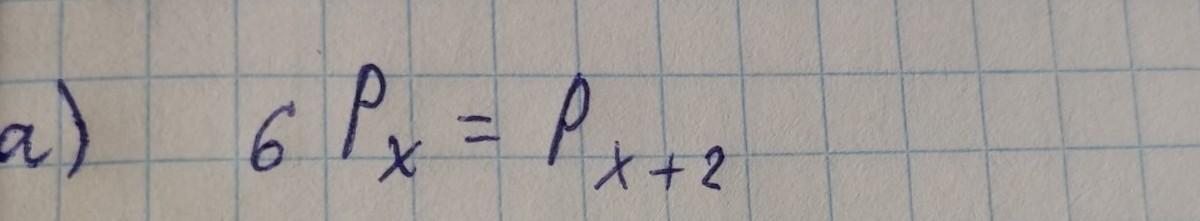 а) 6 Pₓ = Pₓ₊₂